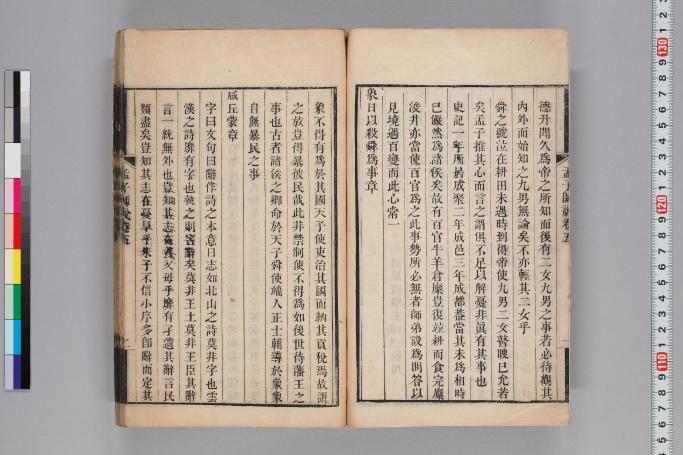 德升聞久為帝之所知而後有二女九男之事若必待觀其
內外而始知之九男無論矣不亦輕其二女乎
舜之號泣在耕田未遇時到得帝使九男二女瞽瞍已允若
矣孟子推其心而言之謂俱不足以解憂非眞有其事也
史記一年所居成聚二年成邑三年成都葢當其未為相時
已儼然為諸侯矣故有百官牛羊倉廩豈復竝耕而食完廩
浚井亦當使百官為之此事勢所必無者師弟設為問答以
見境遇百變而此心常一
象日以殺舜為事章
象不得有為於其國天子使吏治其國而納其貢稅焉故謂
之放豈得暴彼民哉此非禁制使不得為如後世待藩王之
事也古者諸侯之卿命於天子舜使端人正士輔導於象象
自無暴民之事
咸丘蒙章
字曰文句曰辭作詩之本意曰志如北山之詩莫非字也雲
漢之詩靡有字也執之則害辭矣莫非王土莫非王臣其辭
言一統無外也豈知其志在養父母乎靡有孑遺其辭言民
類盡矣豈知其志在憂旱乎朱子不信小序多卽辭而定其
孟子師說卷五